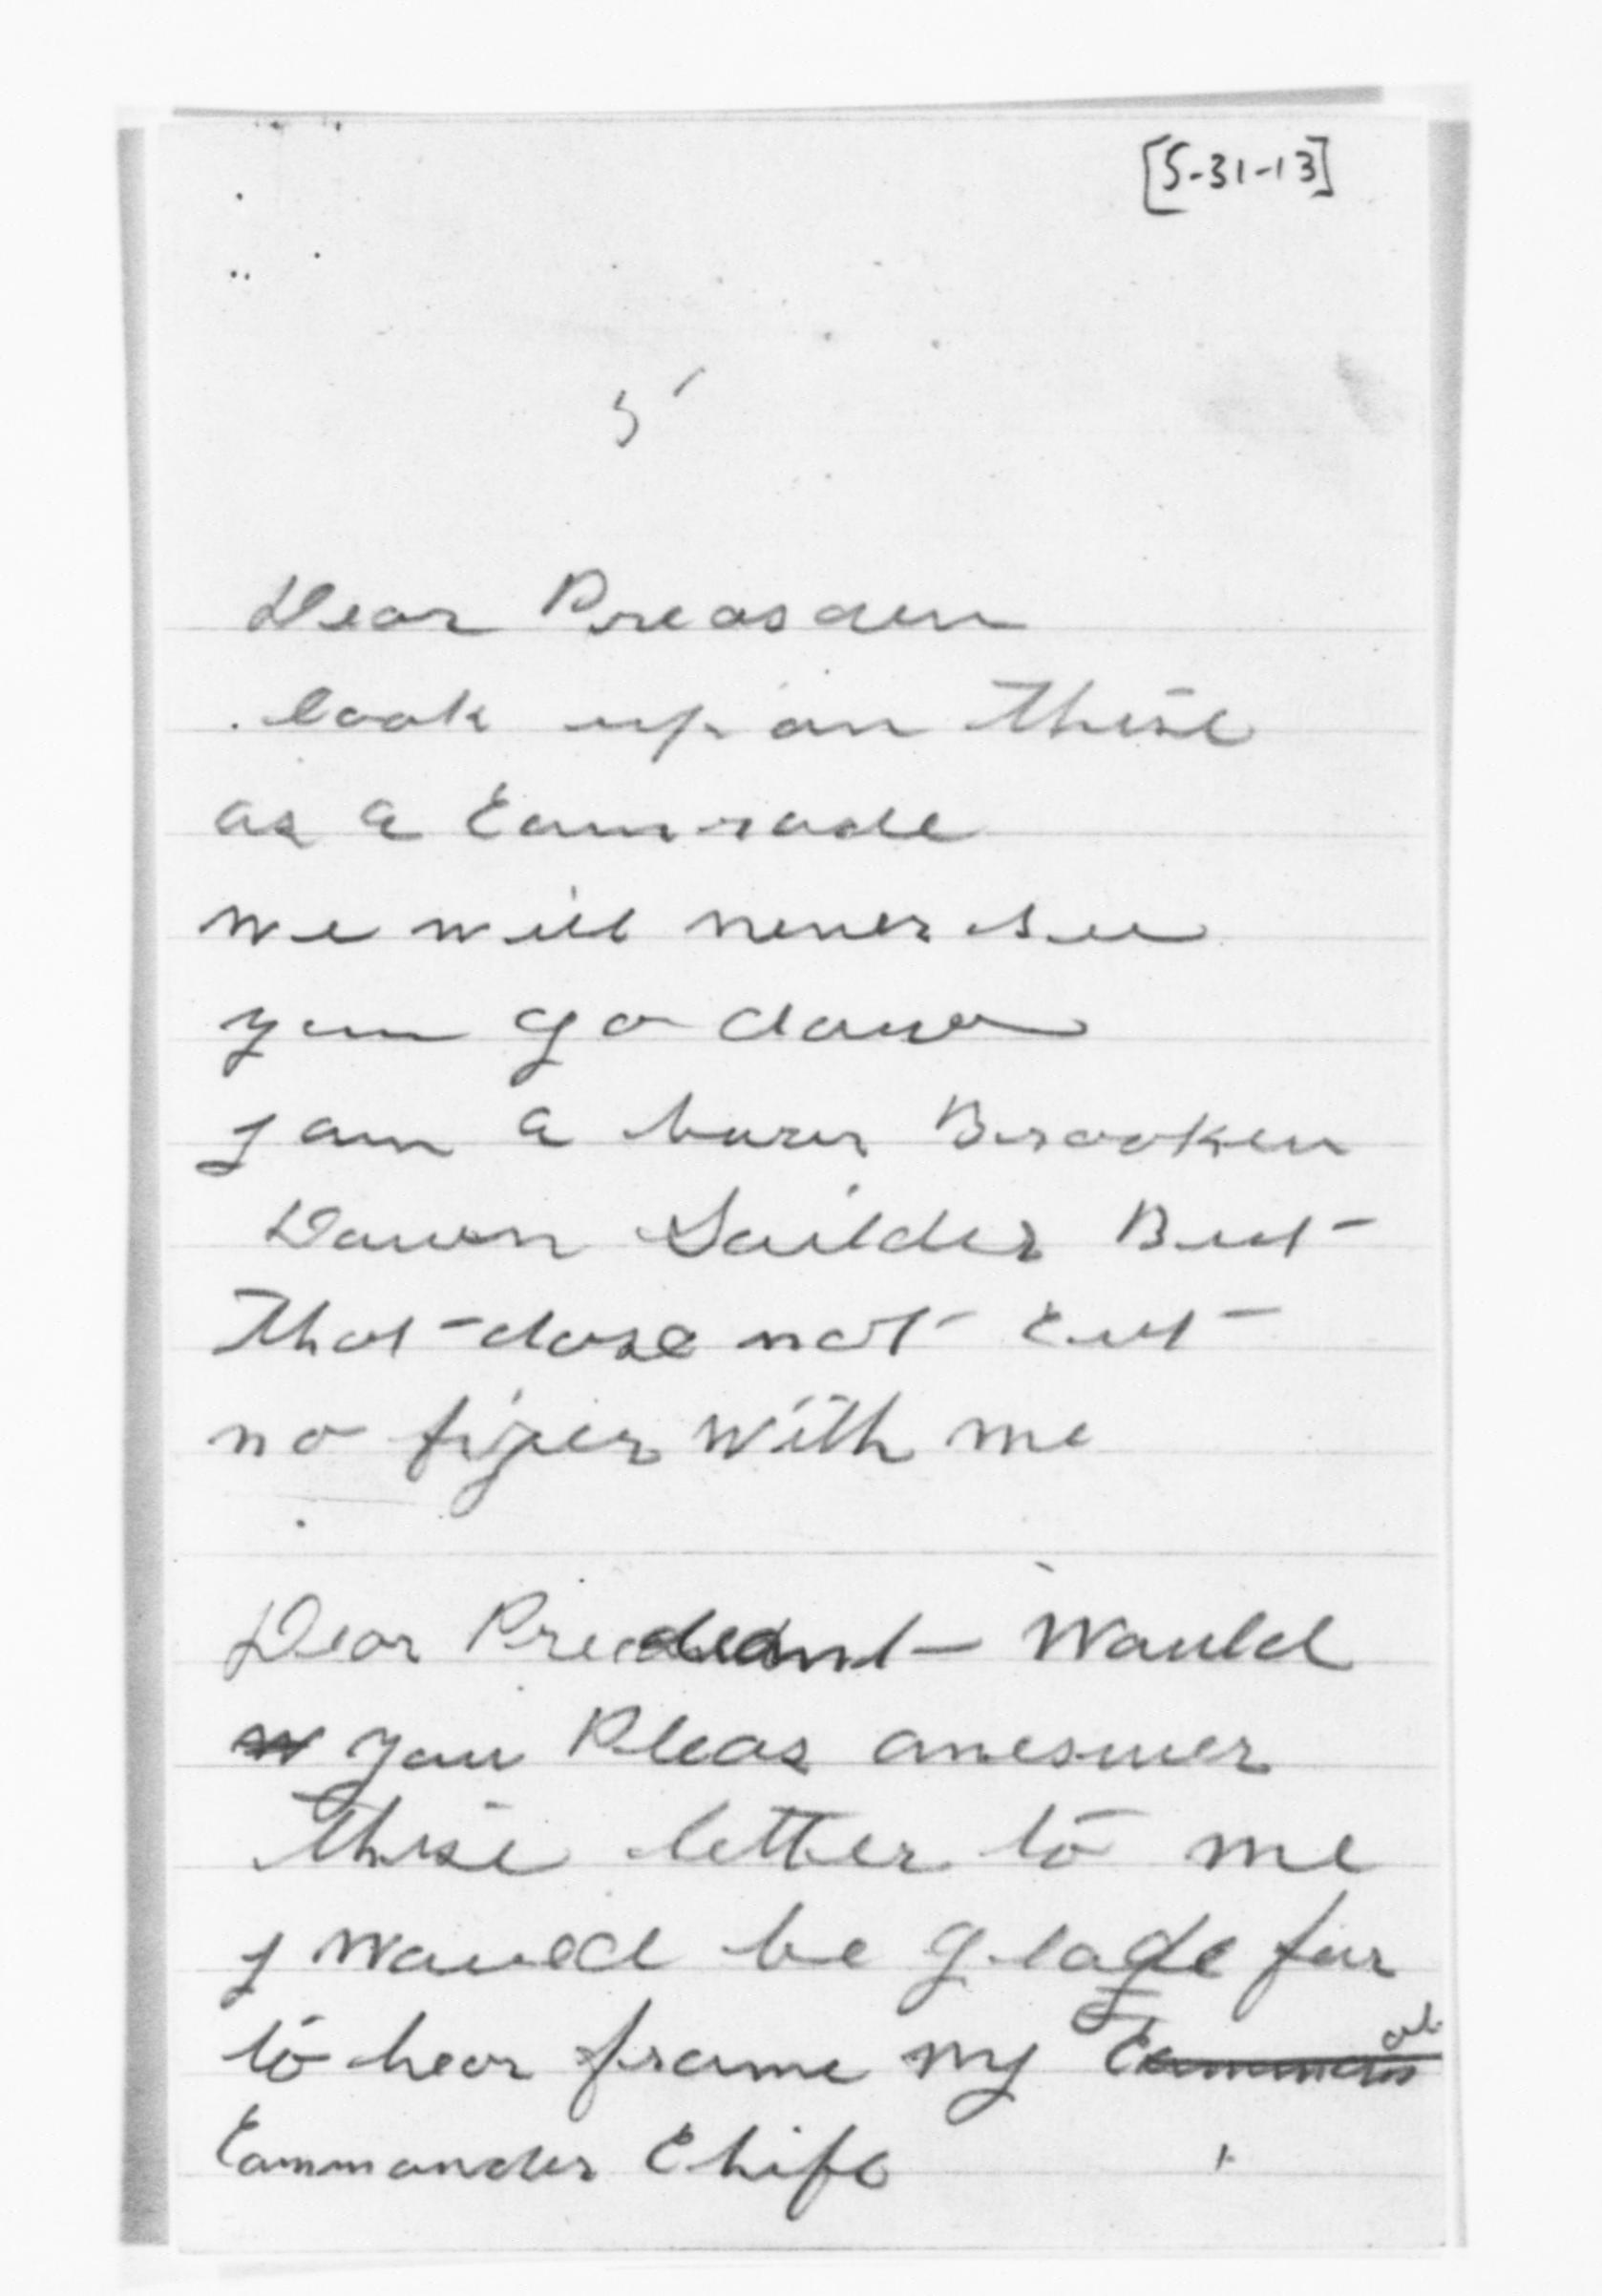 [5-31-13]
5
Dear Preasden
look up on thise
as a Comrade
we will never see
you go down
I am a
Brooken
Dawen Soilder But
that dose not Cut
no figer with me
Dear would
you Pleas aneswer
thise letter to me
I would be glade for
to hear frome my
Commander Chife